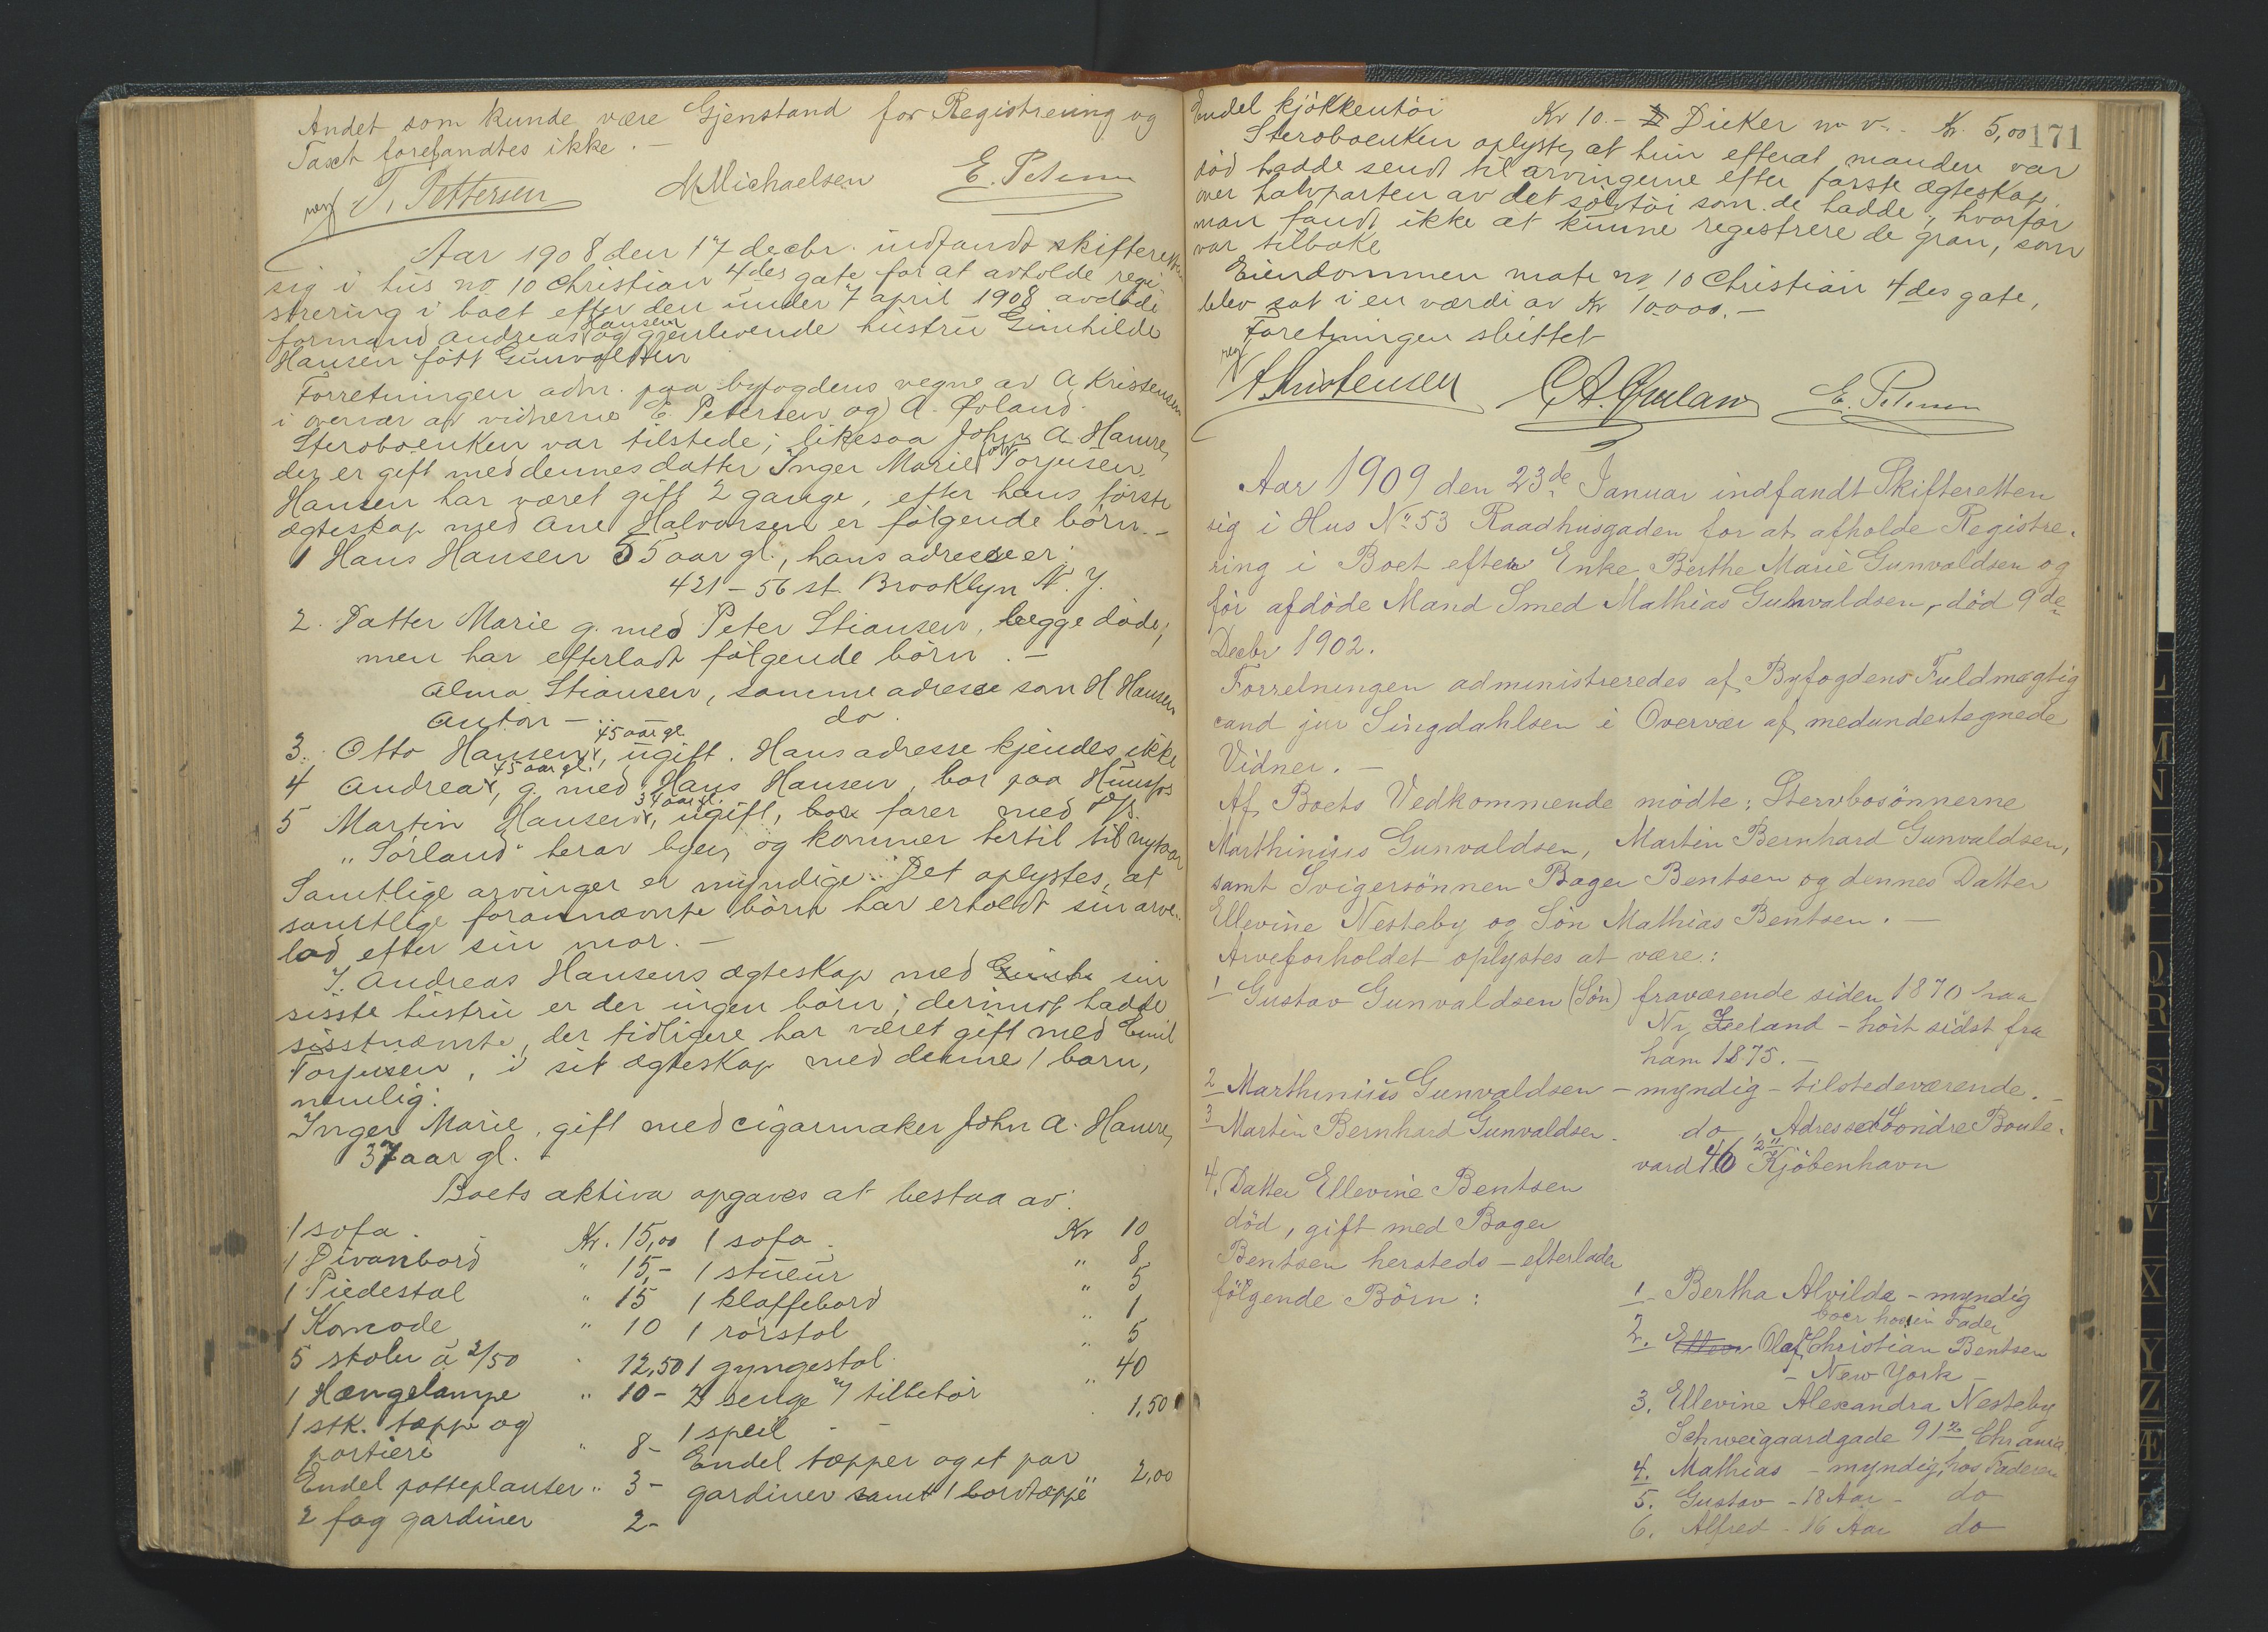 Andet som kunde være Gjenstand for Registrering og
Taxt forefandtes ikke. —
T. Pettersen M Michaelsen E. Petersen
Aar 1908 den 17 decbr. indfandt skifteretten
sig i hus no 10 Christian 4des gate for at avholde regi
strering i boet efter den under 7 april 1908 avdøde
formand Andreas Hansen og gjenlevende hustru Gunhilde
Hansen født Gunvaldsen
Forretningen admr. paa byfogdens vegne av A Kristensen
i overvær af vidnerne E. Petersen og A. Øvland.
Stervboenken var tilstede; likesaa John A. Hamre,
der er gift med dennes datter Inger Marie født Torjusen.
Hansen har været gift 2 gange, efter hans første
ægteskap med Ane Halvorsen er følgende børn. —
1 Hans Hansen 55 aar gl., hans adresse er:
421 – 56 st. Brooklyn N. Y.
2. Datter Marie g. med Peter Stiansen, begge døde,
men har efterladt følgende børn. —
Alma Stiansen, samme adresse som H. Hansen
Anton — do.
3. Otto Hansen, 45 aar gl. ugift. Hans adresse kjendes ikke
4 Andrea, 45 aar gl., g. med Hans Hansen, bor paa Hunsfos
5 Martin Hansen, 34 aar gl. ugift, bor farer med D/S.
"Sørland" herav byen og kommer hertil til nytaar
Samtlige arvinger er myndige. Det oplystes, at
samtlige forannævnte børn har erholdt sin arve-
lod efter sin mor. —
I Andreas Hansens ægteskap med sin
sisste hustru er der ingen børn; derimot hadde
sisstnævnte, der tidligere har været gift med Emil
Torjusen, i sit ægteskap med denne 1 barn,
nemlig:
Inger Marie, gift med cigarmaker John A. Hamre,
37 aar gl.
Boets aktiva opgaves at bestaa av:
1 sofa. Kr. 15,00 1 sofa. Kr 10
1 Divanbord " 15,- 1 stueur " 8
1 Piedestal " 15 1 klaffebord " 5
1 Komode " 10 1 rørstol " 1
5 stoler à 2/50 12,50 1 gyngestol " 5
1 Hængelampe " 10- 2 senge m/ tilbehør " 40
1 stk. tæppe og 1 speil — 1,50
portiere " 8- Endel tæpper og et par
Endel potteplanter " 3- gardiner samt 1 bordtæppe " 2,00
2 fag gardiner 2-
171
Endel kjøkkentøi Kr 10.- Dicker m. v. - Kr. 5,00
Stervboenken oplyste, at hun efterat manden var
død hadde sendt til arvingerne efter første ægteskap
over halvparten av det sølvtøi som de hadde; hvorfor
man fandt ikke at kunne registrere de gran, som
var tilbake
Eiendommen matr no 10 Christian 4des gate,
blev sat i en værdi av Kr 10000.—
Foretningen sluttet
A Kristensen E. Petersen
Aar 1909 den 23de Januar indfandt Skifteretten
sig i Hus No 53 Raadhusgaden for at afholde Registre-
ring i Boet efter Enke Berthe Marie Gunvaldsen og
før afdøde Mand Smed Mathias Gunvaldsen, død 9de
Decbr 1902.
Forretningen administreredes af Byfogdens Fuldmægtig
cand jur Singdahlsen i Overvær af medundertegnede
Vidner. —
Af Boets Vedkommende mødte: Stervbosønnerne
Marthinius Gunvaldsen, Martin Bernhard Gunvaldsen,
samt Svigersønnen Bager Bentsen og dennes Datter
Ellevine Nesteby og Søn Mathias Bentsen. —
Arveforholdet oplystes at være:
1 Gustav Gunvaldsen (Søn) fraværende siden 1870 paa
Ny Zeeland – hørt sidst fra
ham 1875. —
2 Marthinius Gunvaldsen – myndig – tilstedeværende. —
3 Martin Bernhard Gunvaldsen – do, Adresse Søndre Boule-
vard 46 2" Kjöbenhavn
4. Datter Ellevine Bentsen
død, gift med Bager
Bentsen hersteds – efterlader
følgende Børn:
1. Bertha Alvilda – myndig
boer hos sin Fader
2. Olaf Christian Bentsen
– New York –
3. Ellevine Alexandra Nesteby
Schweigaardgade 91 2 Chrania
4. Mathias – myndig, hos Faderen
5. Gustav – 18 Aar – do
6. Alfred – 16 Aar do
L
M
N
O
P
Q
R
S
T
U
V
X
Y
Z
Æ